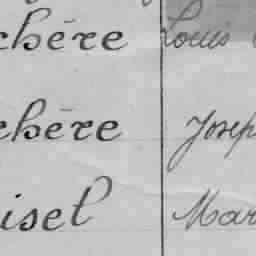 chère Louis
chère Josep
isel Mar